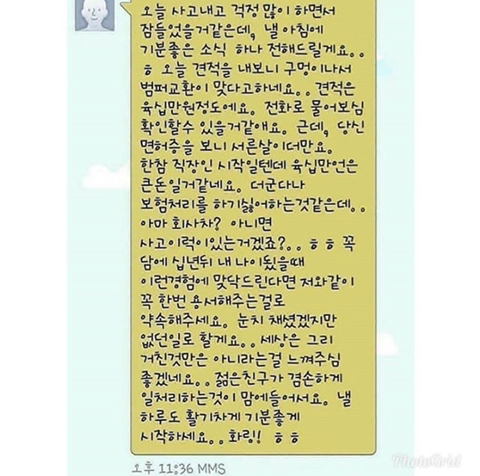 오늘 사고내고 걱정 많이 하면서
잠들었을거같은데, 낼 아침에
기분좋은 소식 하나 전해드릴게요..
ㅎ 오늘 견적을 내보니 구멍이나서
범퍼교환이 맞다고하네요.. 견적은
육십만원정도에요. 전화로 물어보심
확인할수 있을거같애요. 근데, 당신
면허증을 보니 서른살이더만요.
한참 직장인 시작일텐데 육십만언은
큰돈일거같네요. 더군다나
보험처리를 하기싫어하는것같은데..
아마 회사차? 아니면
사고이력이있는거겠죠?.. ㅎㅎ 꼭
담에 십년뒤 내 나이됬을때
이런경험에 맞닥드린다면 저와같이
꼭 한번 용서해주는걸로
약속해주세요. 눈치 채셨겠지만
없던일로 할게요.. 세상은 그리
거친것만은 아니라는걸 느껴주심
좋겠네요.. 젊은친구가 겸손하게
일처리하는것이 맘에들어서요. 낼
하루도 활기차게 기분좋게
시작하세요.. 화링! ㅎㅎ
오후 11:36 MMS
PhotoGrid